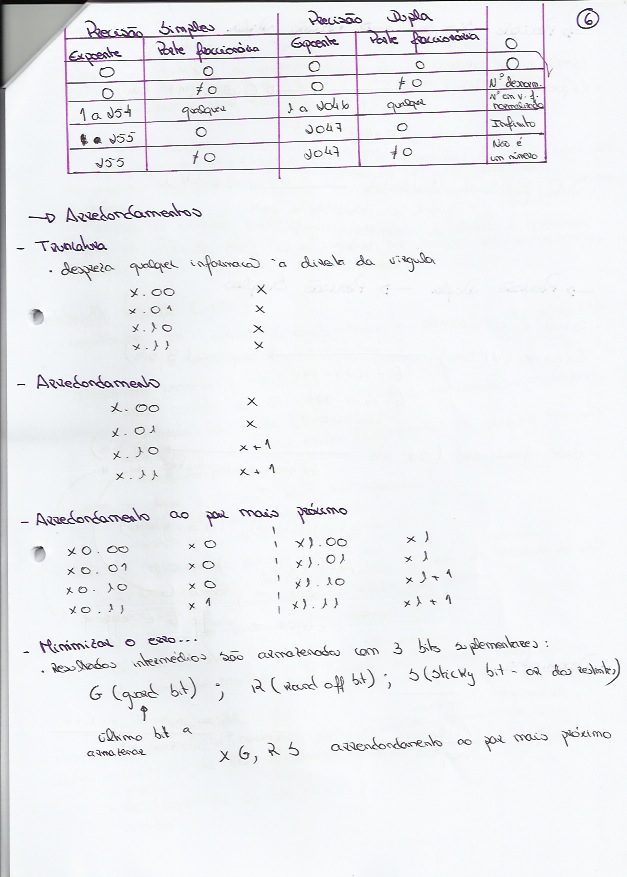 6
Precisão Simples Precisão Dupla
Expoente Parte fraccionária Expoente Parte fraccionária 0
0 0 0 0 0
0 ≠0 0 ≠0 Nº desnorm.
1 a 254 qualquer 1 a 2046 qualquer Nº em v. f. normalizada
255 0 2047 0 Infinito
255 ≠0 2047 ≠0 Não é um número
→ Arredondamentos
- Truncatura
. despreza qualquer informação à direita da vírgula
x.00 x
x.01 x
x.10 x
x.11 x
- Arredondamento
x.00 x
x.01 x
x.10 x+1
x.11 x+1
- Arredondamento ao par mais próximo
x0.00 x0 x1.00 x1
x0.01 x0 x1.01 x1
x0.10 x0 x1.10 x1+1
x0.11 x1 x1.11 x1+1
- Minimizar o erro...
. Resultados intermédios são armazenados com 3 bits suplementares:
G (guard bit) ; R (round off bit) ; S (sticky bit - or dos restantes)
último bit a
armazenar
x G, R S arrendondamento ao par mais próximo